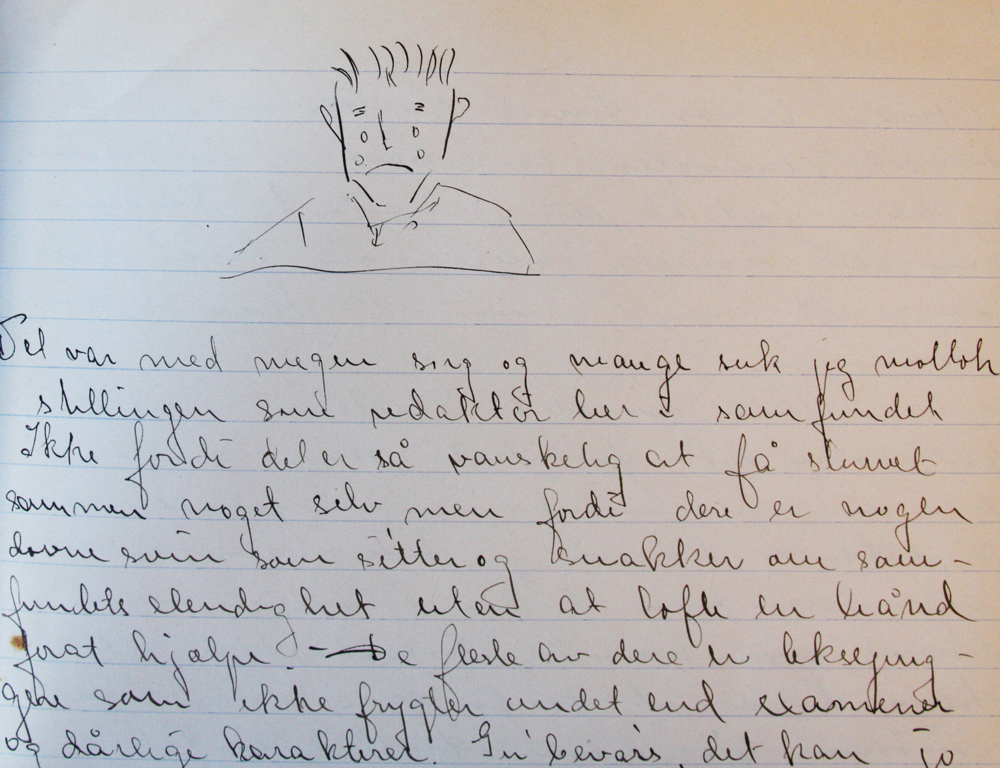 Det var med megen sorg og mange suk jeg mottok
stillingen som redaktør her i samfundet
Ikke fordi det er så vanskelig at få skrevet
sammen noget selv men fordi dere er nogen
dovne svin som sitter og snakker om sam-
fundets elendighet uten at løfte en hånd
forat hjælpe. - De fleste av dere er leksejug-
gere som ikke frygter andet end examener
og dårlige karakterer. Gu'bevars, det kan jo